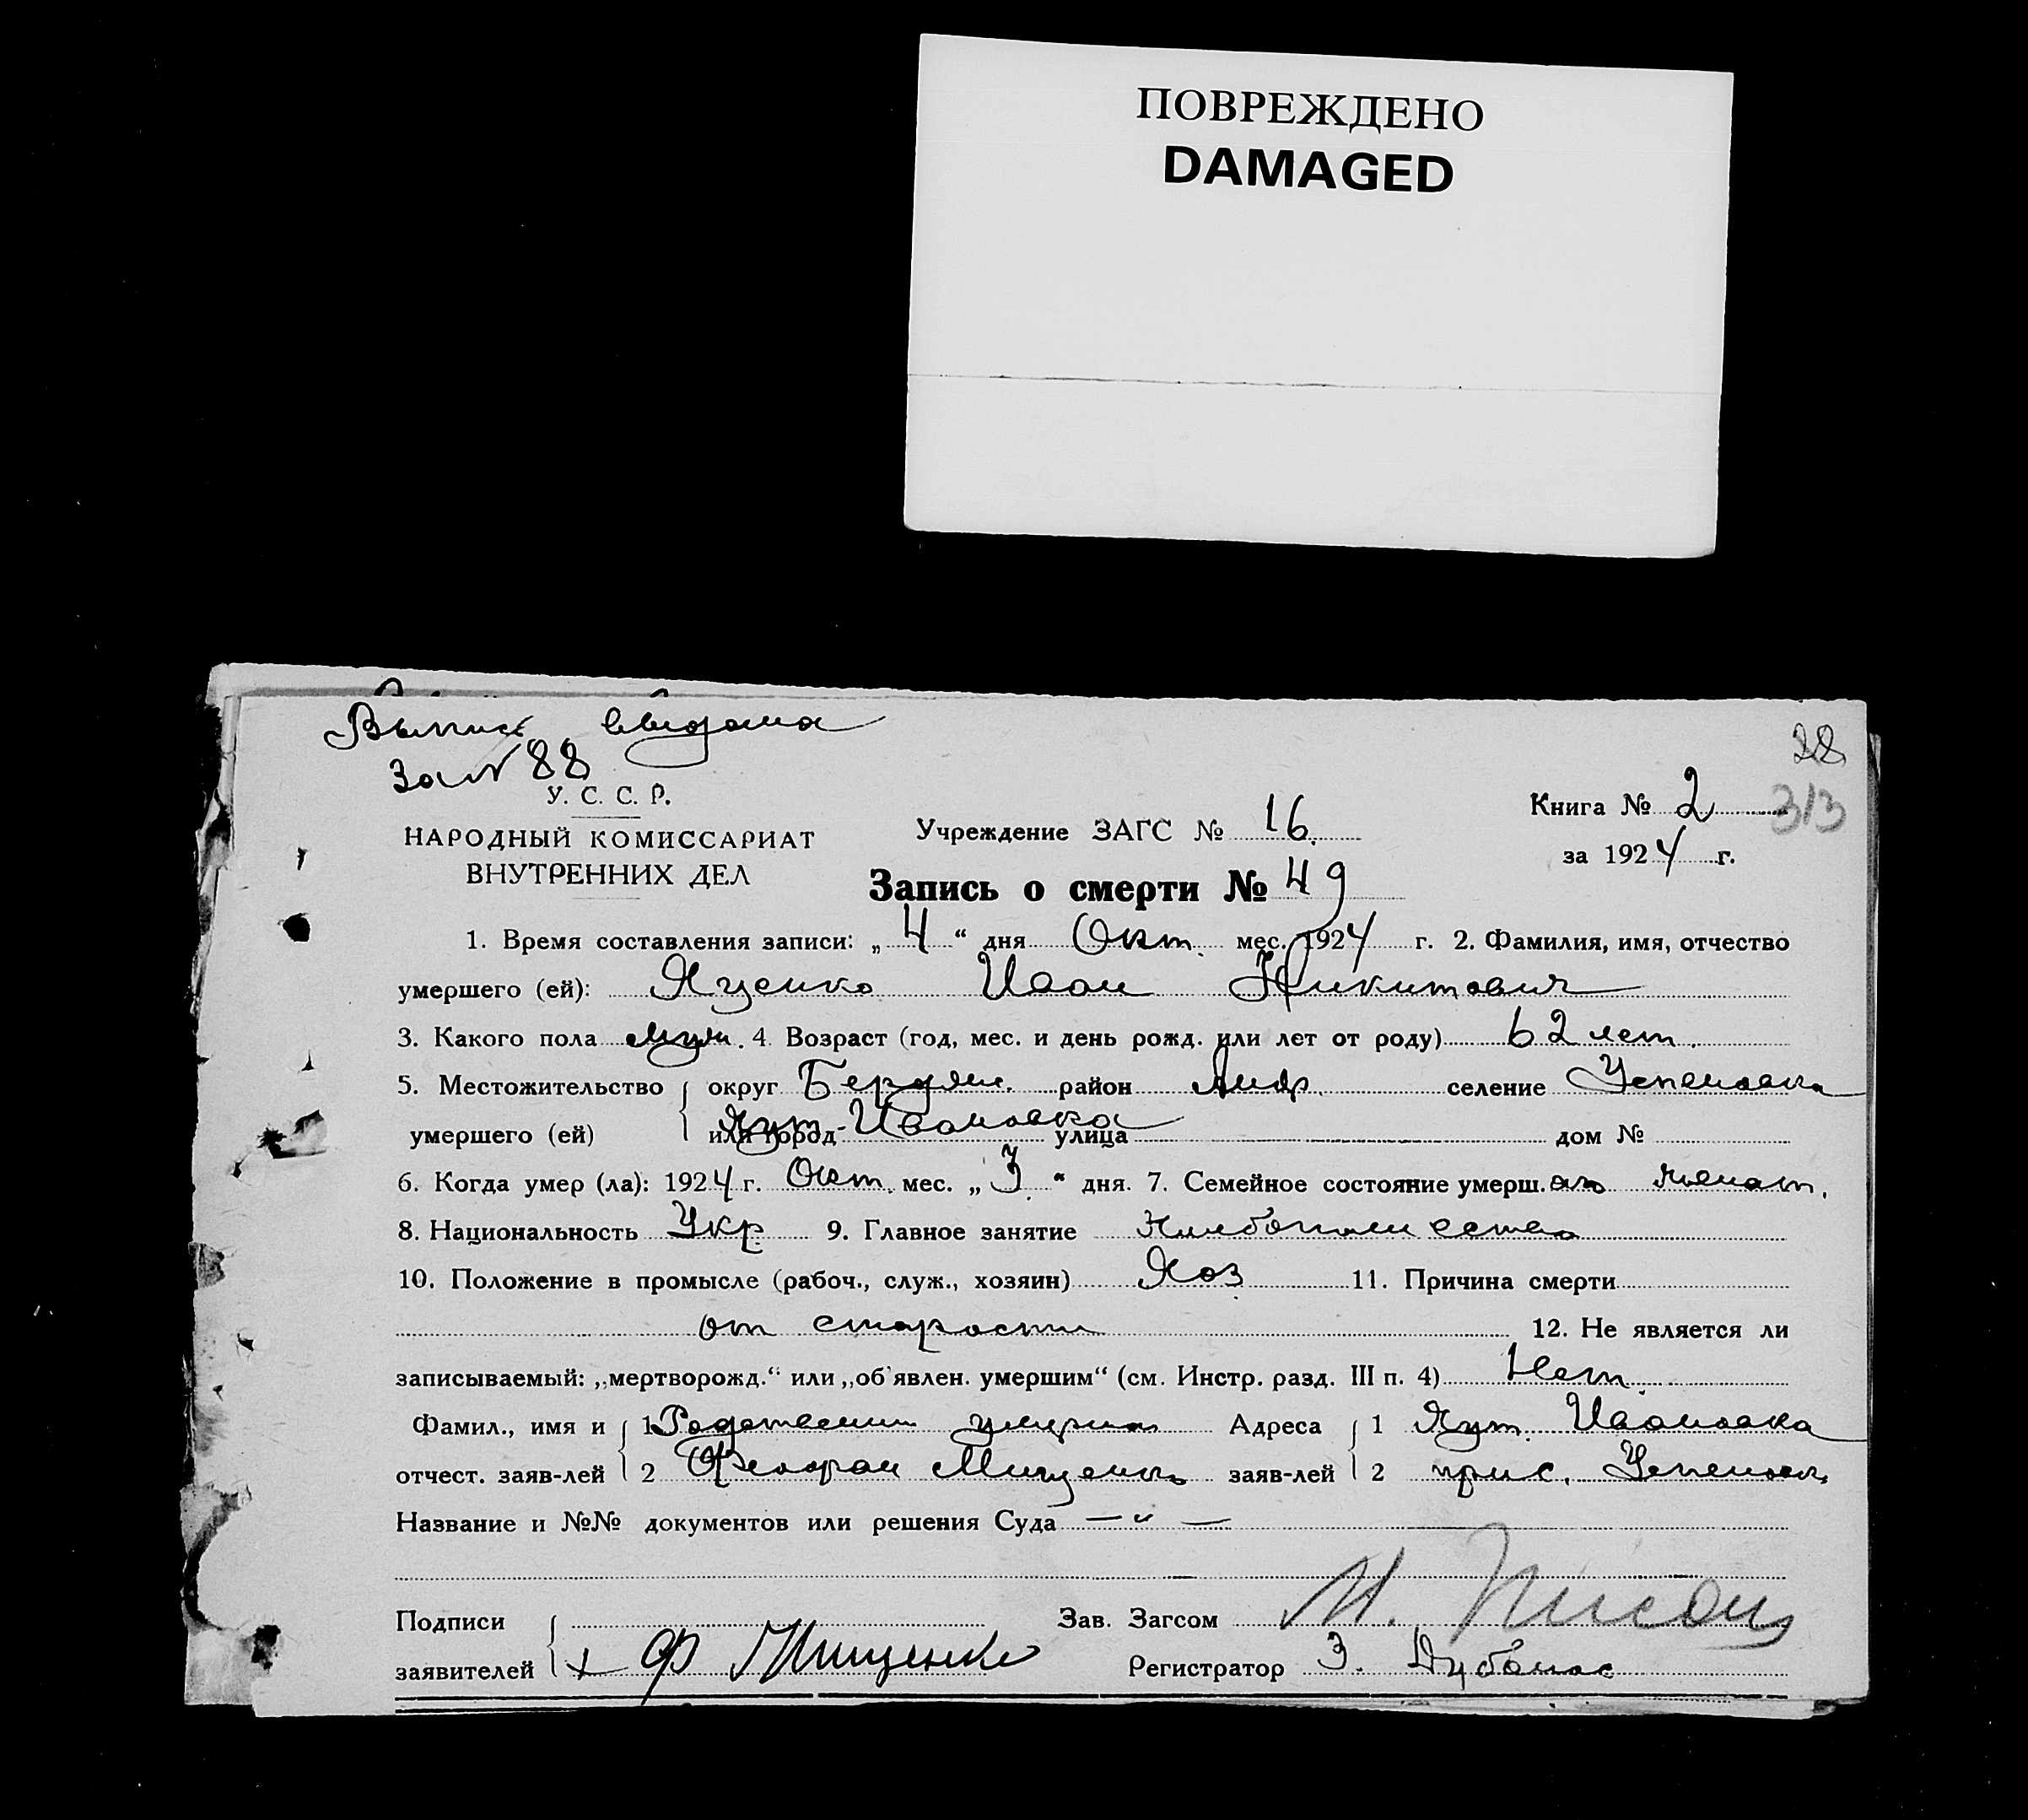 ПОВРЕЖДЕНО
DAMAGED
Выпись выдана
за № 88
28
У. С. С. Р.
Книга № 2
313
НАРОДНЫЙ КОМИССАРИАТ
ВНУТРЕННИХ ДЕЛ
Учреждение ЗАГС № 16
за 1924 г.
Запись о смерти № 49
1. Время составления записи: „4“ дня Окт. мес. 1924 г. 2. Фамилия, имя, отчество
умершего (ей): Яценко Иван Никитович
3. Какого пола муж. 4. Возраст (год, мес. и день рожд. или лет от роду) 62 лет.
5. Местожительство округ Бердян. район Люкс. селение Успеновка
умершего (ей) или город Хут. Ивановка улица дом №
6. Когда умер (ла): 1924 г. Окт. мес. „3“ дня. 7. Семейное состояние умерш. его женат.
8. Национальность Укр. 9. Главное занятие Хлебопашество
10. Положение в промысле (рабоч., служ., хозяин) Хоз 11. Причина смерти
от старости 12. Не является ли
записываемый: „мертворожд.“ или „об'явлен. умершим“ (см. Инстр. разд. III п. 4) Нет.
Фамил., имя и 1 Родственник умерш. Адреса 1 Хут. Ивановка
отчест. заяв-лей 2 Феофан Мищенко заяв-лей 2 прис. Успенов.
Название и №№ документов или решения Суда — „ —
Подписи Зав. Загсом И.
заявителей + Ф Мищенко Регистратор З.